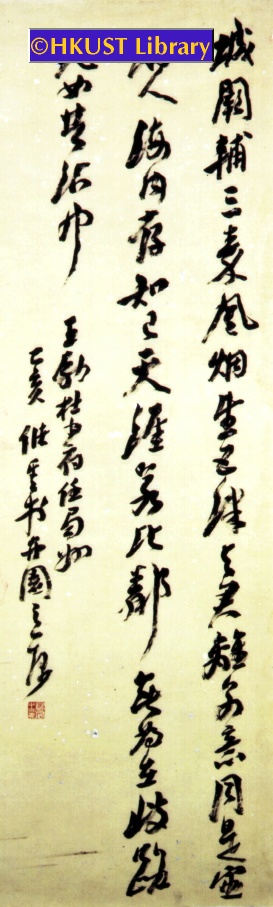 ©HKUST Library
城闕輔三秦風烟望五津與君離別意同是宦
遊人海内存知己天涯若比鄰無為在歧路
兒女共沾巾
王勃杜少府任蜀州